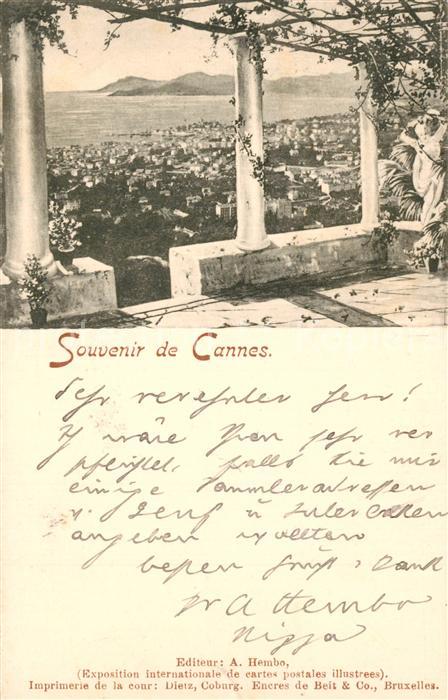 Souvenir de Cannes.
Sehr verehrter Herr!
Ich wäre Ihnen sehr ver
pflichtet, falls Sie mir
einige Sammleradressen
v. Genf u
angeben wollten
besten Gruß & Dank
A Hembo
Nizza
Editeur: A. Hembo,
(Exposition internationale de cartes postales illustrees).
Imprimerie de la cour: Dietz, Coburg. Encres de Beit & Co., Bruxelles.